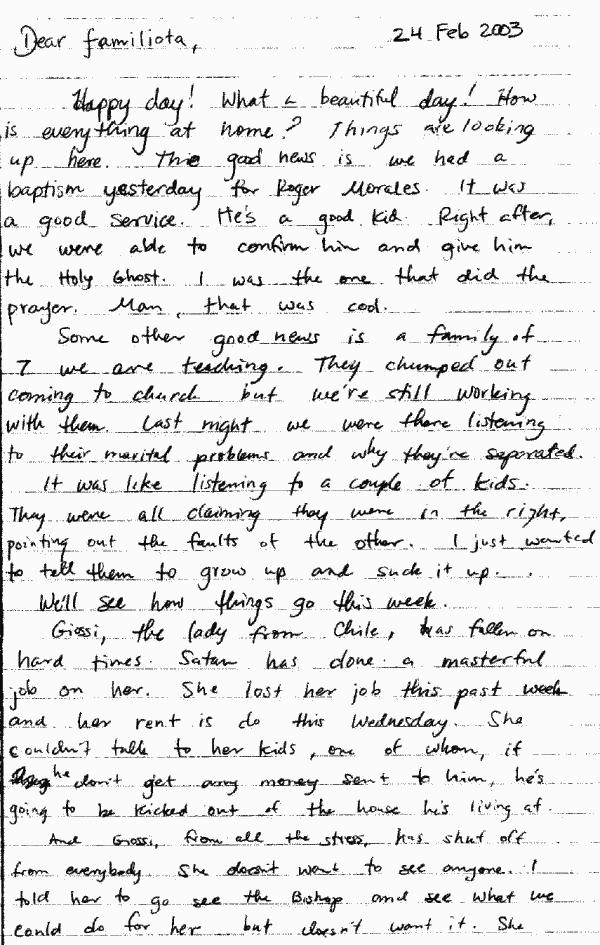 Dear familiota,
24 Feb 2003
Happy day! What a beautiful day! How
is everything at home? Things are looking
up here. The good news is we had a
baptism yesterday for Roger Morales. It was
a good service. He's a good kid. Right after,
we were able to confirm him and give him
the Holy Ghost. I was the one that did the
prayer. Man, that was cool.
Some other good news is a family of
7 we are teaching. They chumped out
coming to church but we're still working
with them. Last night we were there listening
to their marital problems and why they're separated.
It was like listening to a couple of kids.
They were all claiming they were in the right,
pointing out the faults of the other. I just wanted
to tell them to grow up and suck it up. .
We'll see how things go this week.
Giossi, the lady from Chile, has fallen on
hard times. Satan has done a masterful
job on her. She lost her job this past week
and her rent is do this Wednesday. She
couldn't talk to her kids, one of whom, if
he don't get any money sent to him, he's
going to be kicked out of the house he's living at.
And Giossi, from all the stress, has shut off
from everybody. She doesn't want to see anyone. I
told her to go see the Bishop and see what we
could do for her but doesn't want it. She